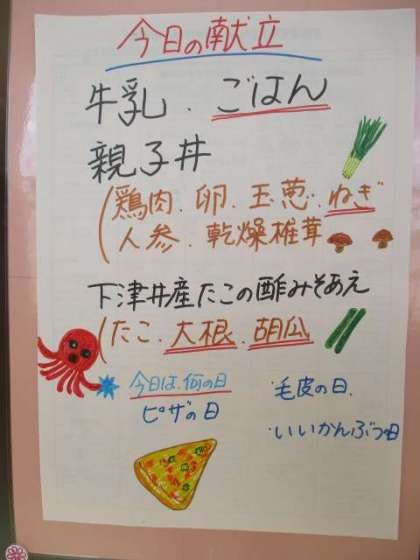 今日の献立
牛乳．ごはん
親子丼
(鶏肉．卵．玉葱．ねぎ
人参．乾燥椎茸
下津井産たこの酢みそあえ
(たこ．大根．胡瓜
今日は、何の日
ピザの日
・毛皮の日．
・いいかんぶつの日